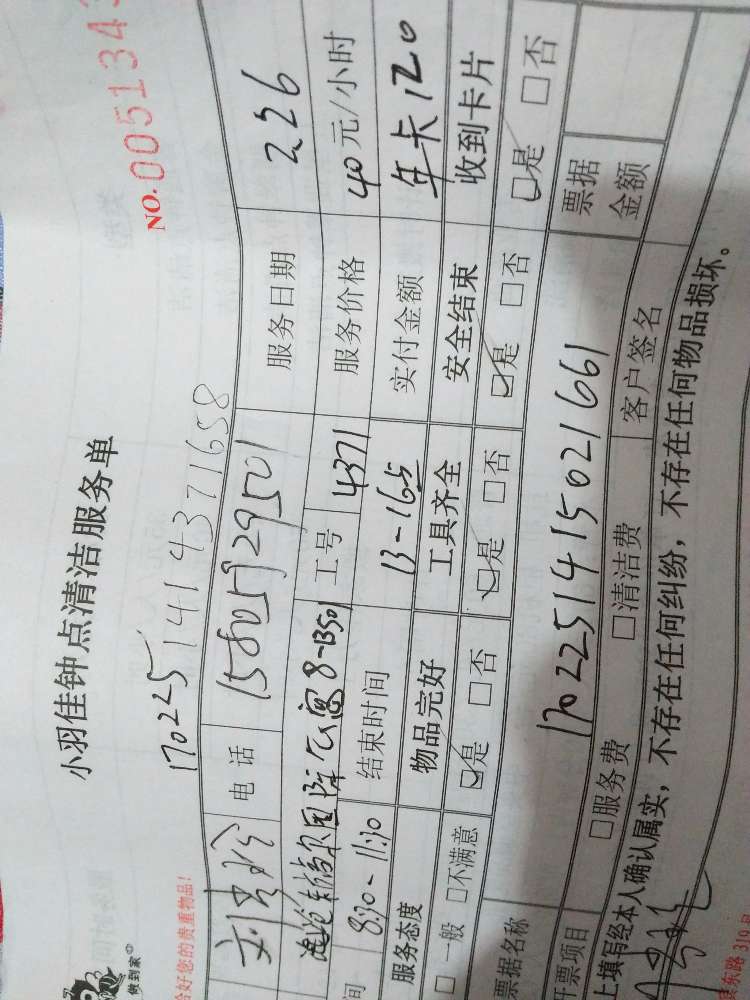 做到家
小羽佳钟点清洁服务单
NO.0051343
合好您的贵重物品!
170225141437 1658
电话 15805329501 服务日期 2.26
公寓8-1350 工号 4371 服务价格 40元/小时
间 8:30~11:30 结束时间 13-16.5 实付金额 年卡120
服务态度 物品完好 工具齐全 安全结束 收到卡片
□一般 □不满意 ☑是 □否 ☑是 □否 ☑是 □否 ☑是 □否
票据名称 170225141502 1661 票据金额
开票项目 □服务费 □清洁费 客户签名
上填写经本人确认属实,不存在任何纠纷,不存在任何物品损坏。
东路319